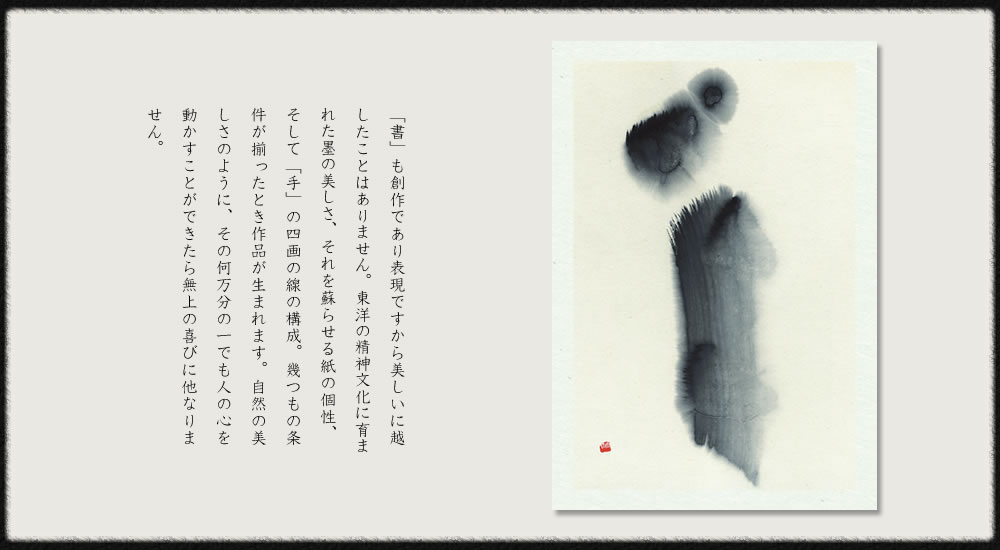 「書」も創作であり表現ですから美しいに越
したことはありません。東洋の精神文化に育ま
れた墨の美しさ、それを蘇らせる紙の個性、
そして「手」の四画の線の構成。幾つもの条
件が揃ったとき作品が生まれます。自然の美
しさのように、その何万分の一でも人の心を
動かすことができたら無上の喜びに他なりま
せん。